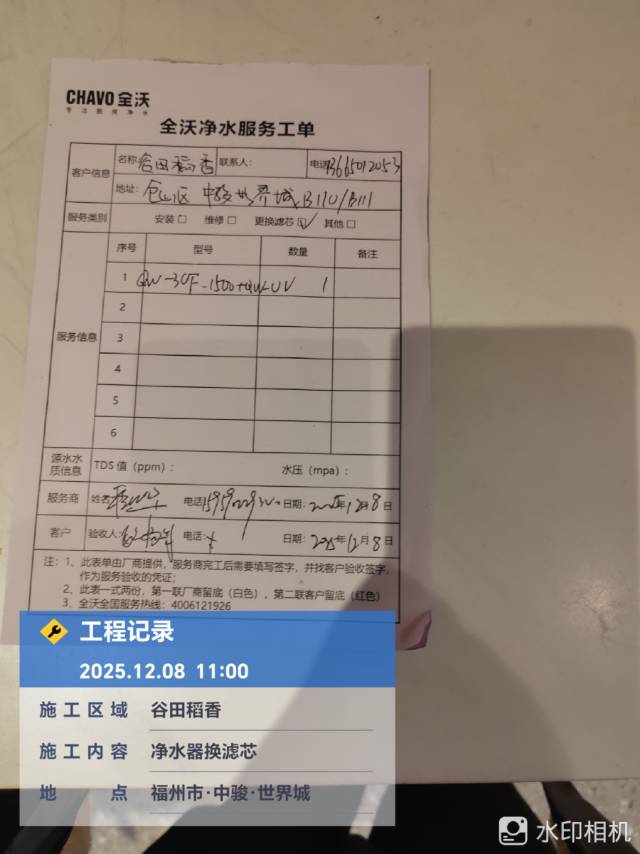 CHAVO 全沃
专注商用净水
全沃净水服务工单
客户信息 名称 谷田稻香 联系人： 电话 13665012053
地址： 仓山区 中骏世界城B110/B111
服务类别 安装□ 维修□ 更换滤芯☑ 其他□
服务信息 序号 型号 数量 备注
1 1
2
3
4
5
6
源水水质信息 TDS 值（ppm）： 水压（mpa）：
服务商 姓名 电话 日期： 2025年12月8日
客户 验收人： 电话： 日期： 2025年12月8日
注：1、此表单由厂商提供，服务商完工后需要填写签字，并找客户验收签字，
作为服务验收的凭证；
2、此表一式两份，第一联厂商留底（白色），第二联客户留底（红色）
3、全沃全国服务热线：4006121926
工程记录
2025.12.08 11:00
施工区域 谷田稻香
施工内容 净水器换滤芯
地点 福州市·中骏·世界城
水印相机